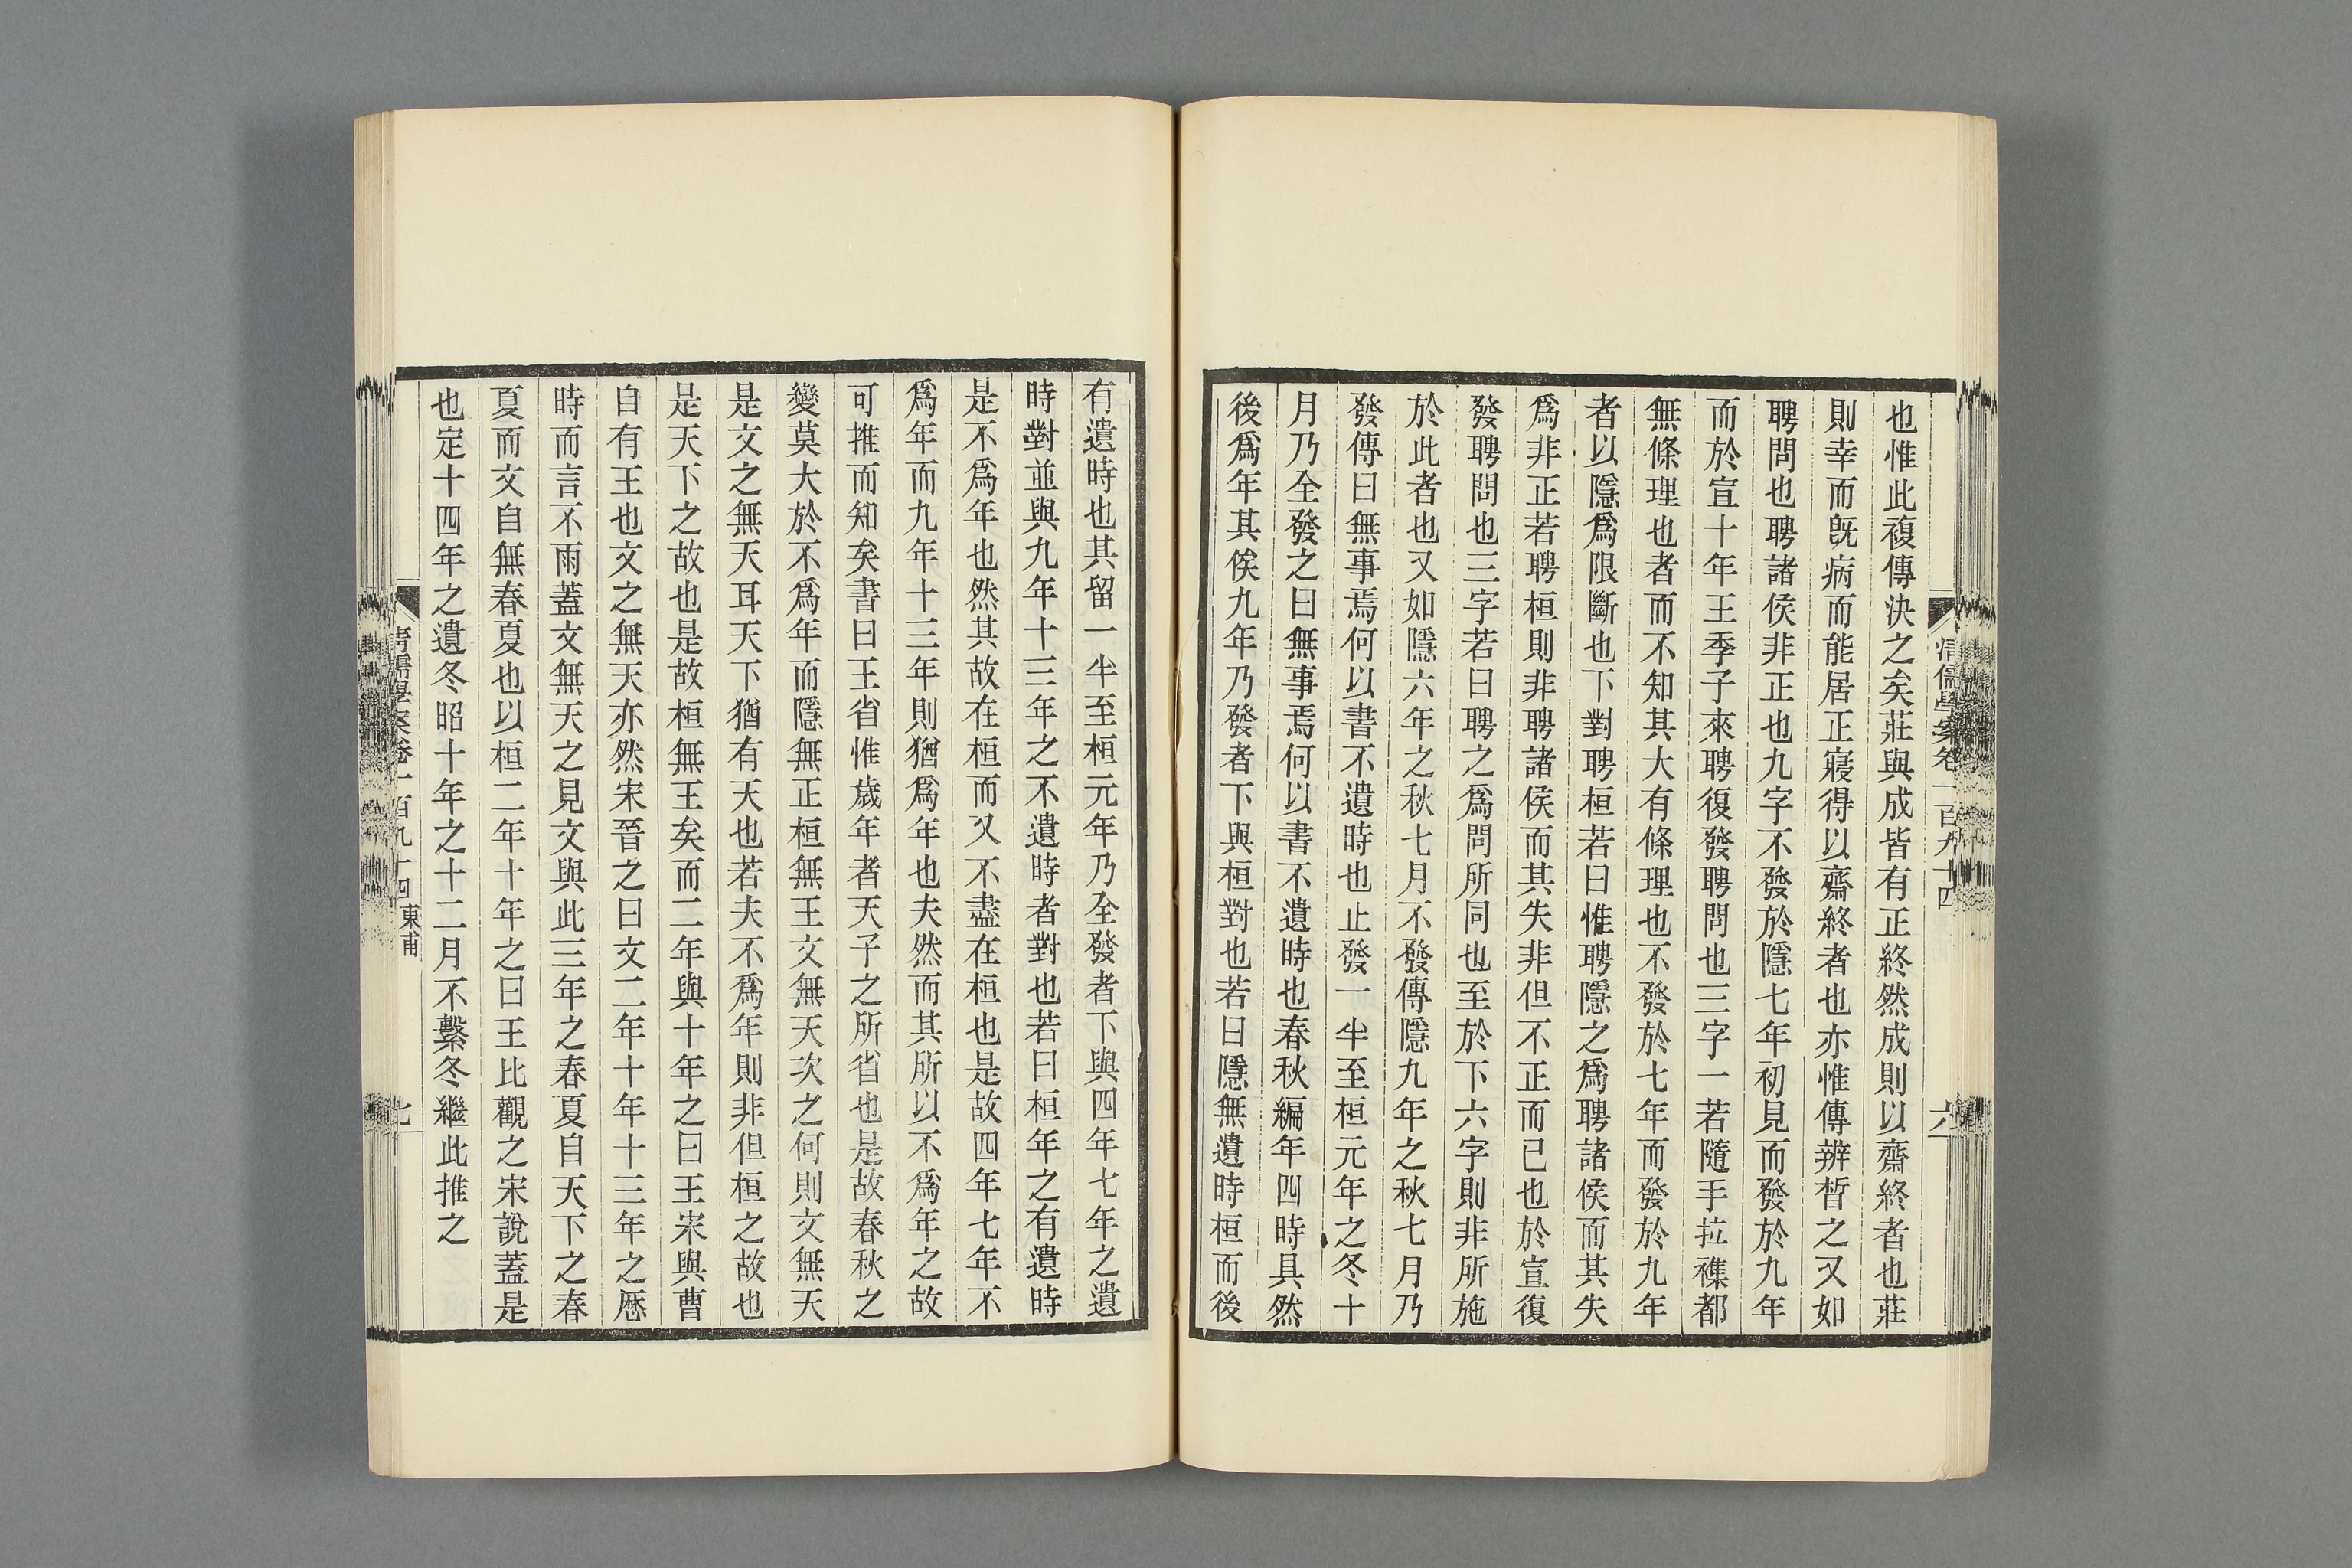 也惟此複傳決之矣莊與成皆有正終然成則以齋終者也莊
則幸而旣病而能居正寢得以齋終者也亦惟傳辨晳之又如
聘問也聘諸侯非正也九字不發於隱七年初見而發於九年
而於宣十年王季子來聘復發聘問也三字一若隨手拉襍都
無條理也者而不知其大有條理也不發於七年而發於九年
者以隱爲限斷也下對聘桓若曰惟聘隱之爲聘諸侯而其失
爲非正若聘桓則非聘諸侯而其失非但不正而已也於宣復
發聘問也三字若曰聘之爲問所同也至於下六字則非所施
於此者也又如隱六年之秋七月不發傳隱九年之秋七月乃
發傳曰無事焉何以書不遺時也止發一半至桓元年之冬十
月乃全發之曰無事焉何以書不遺時也春秋編年四時具然
後爲年其俟九年乃發者下與桓對也若曰隱無遺時桓而後
清儒學案卷一百九十四
六
有遺時也其留一半至桓元年乃全發者下與四年七年之遺
時對並與九年十三年之不遺時者對也若曰桓年之有遺時
是不爲年也然其故在桓而又不盡在桓也是故四年七年不
爲年而九年十三年則猶爲年也夫然而其所以不爲年之故
可推而知矣書曰王省惟歲年者天子之所省也是故春秋之
變莫大於不爲年而隱無正桓無王文無天次之何則文無天
是文之無天耳天下猶有天也若夫不爲年則非但桓之故也
是天下之故也是故桓無王矣而二年與十年之曰王宋與曹
自有王也文之無天亦然宋晉之曰文二年十年十三年之厯
時而言不雨蓋文無天之見文與此三年之春夏自天下之春
夏而文自無春夏也以桓二年十年之曰王比觀之宋說蓋是
也定十四年之遺冬昭十年之十二月不繫冬繼此推之
清儒學案卷一百九十四 東甫
七